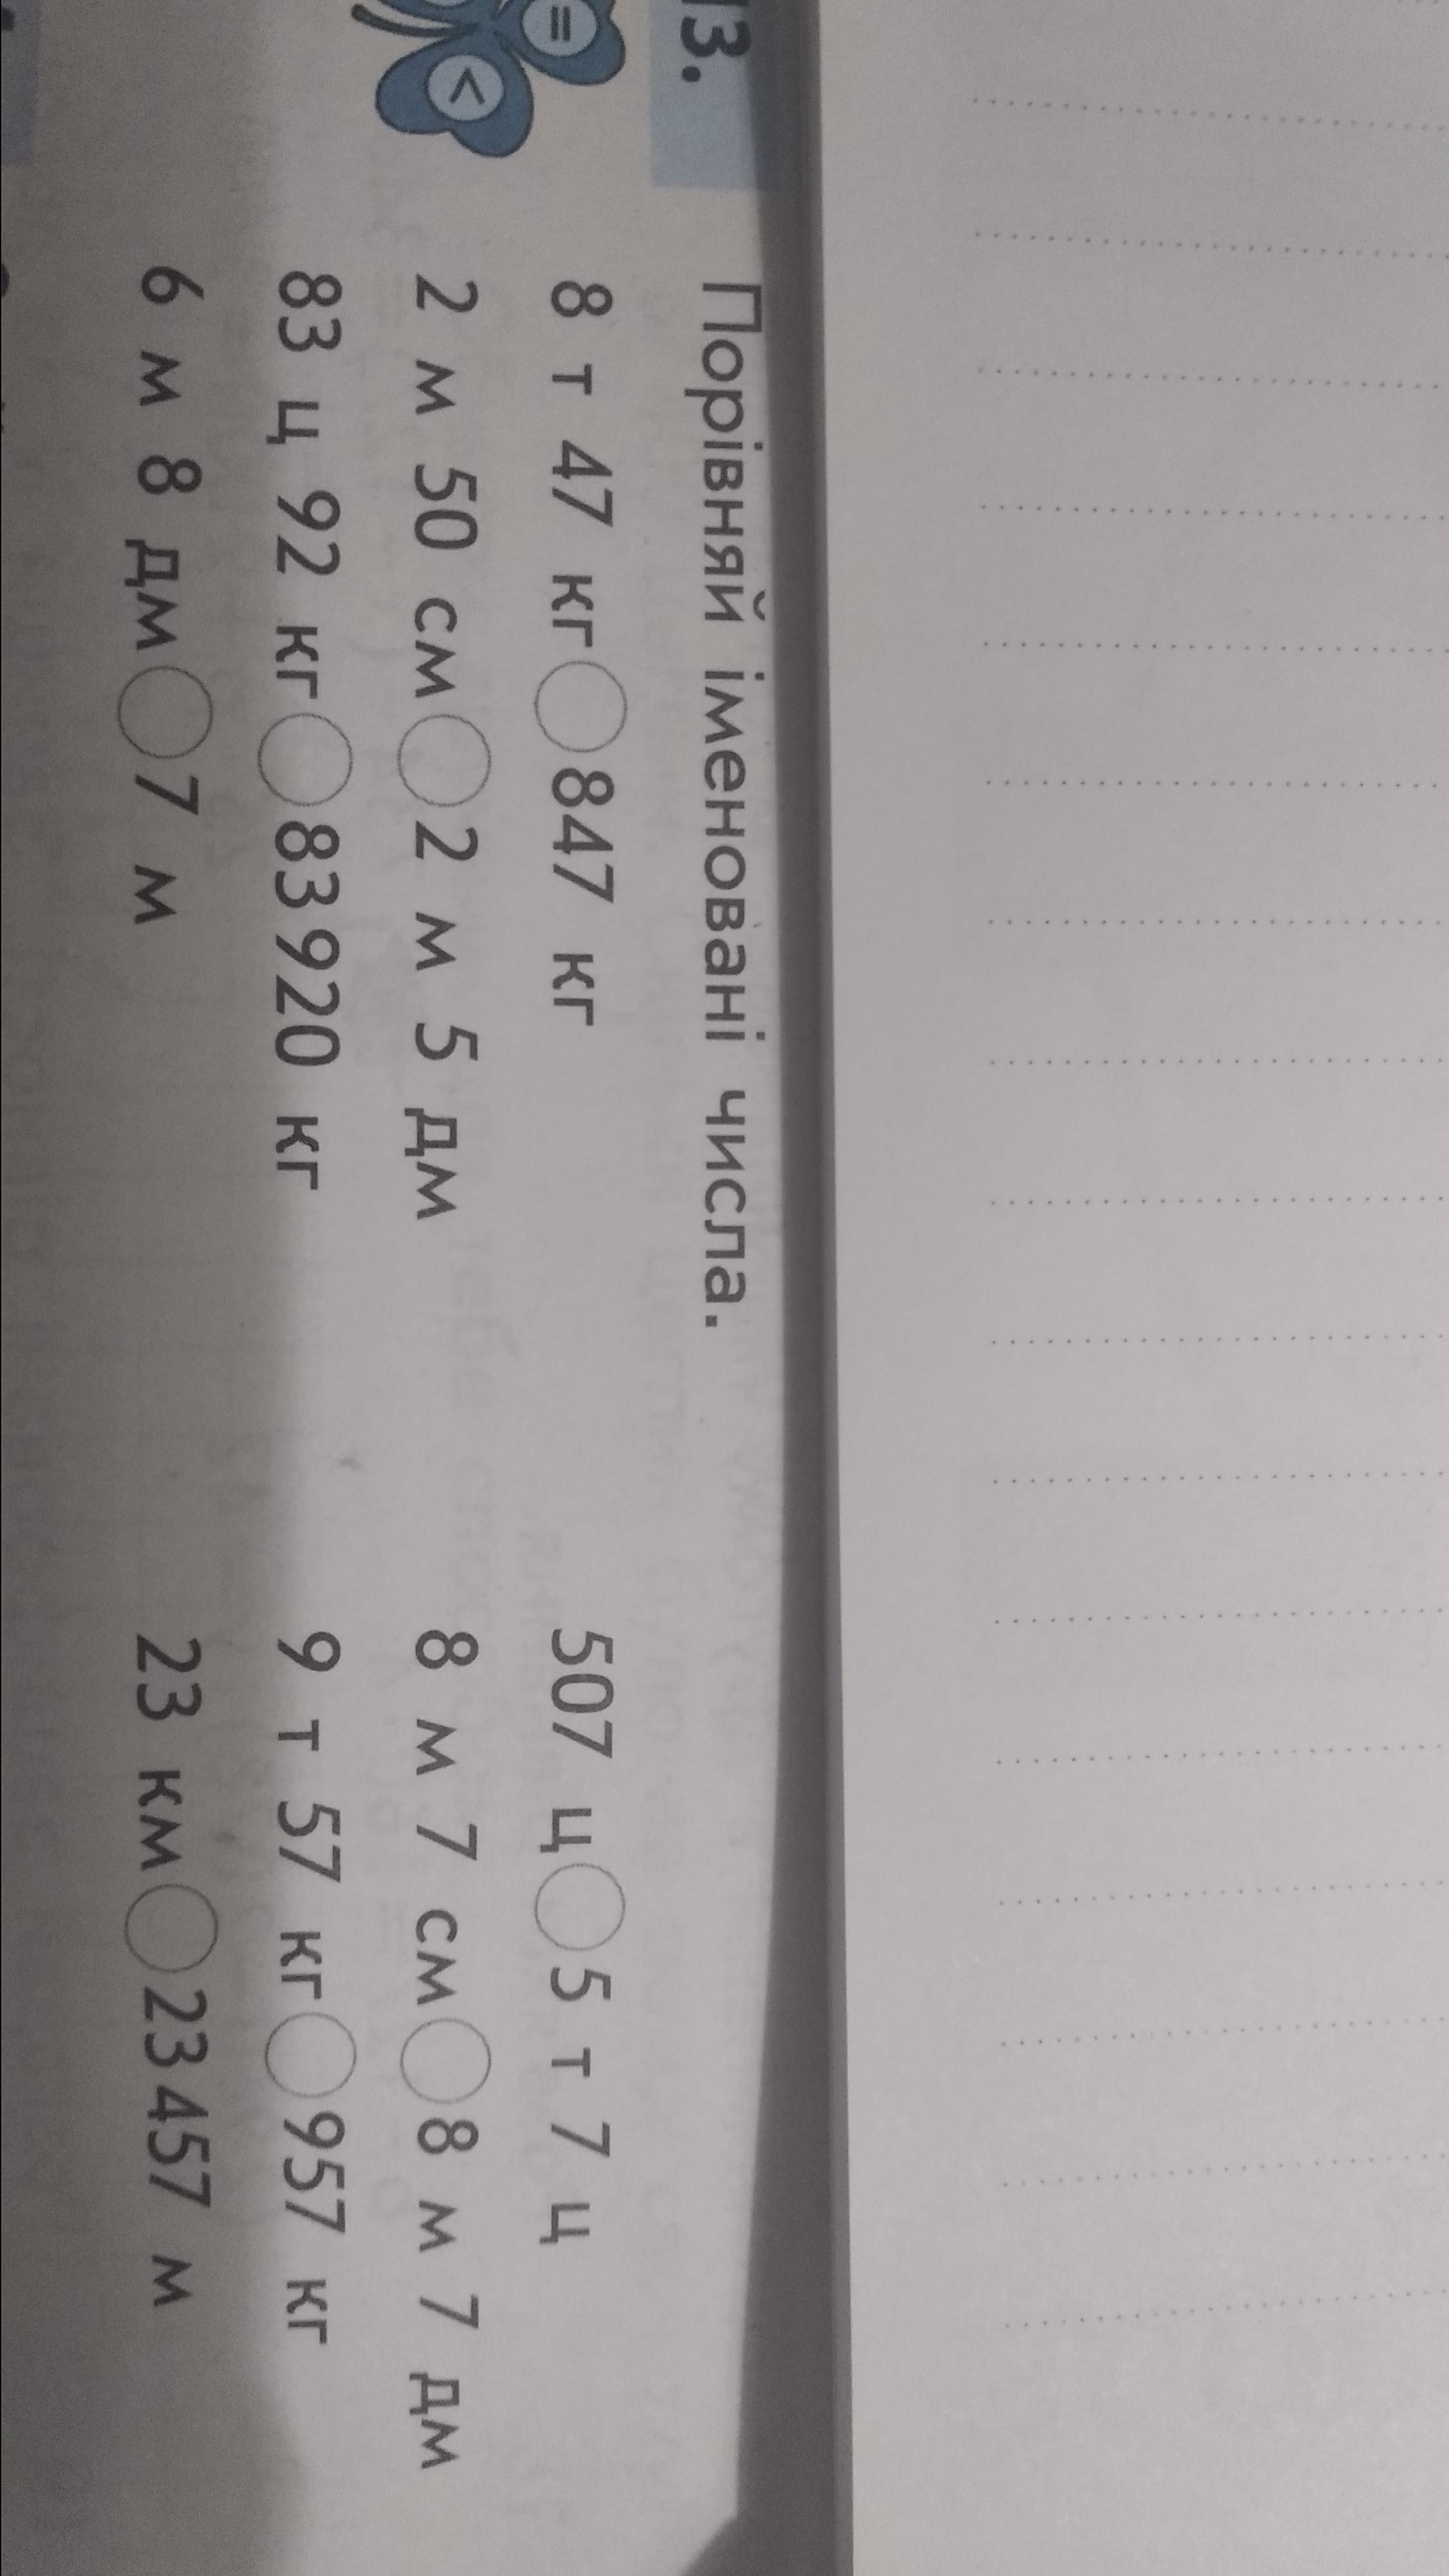 13. Порівняй іменовані числа.
8 т 47 кг 847 кг 507 ц 5 т 7 ц
= 2 м 50 см 2 м 5 дм 8 м 7 см 8 м 7 дм
< 83 ц 92 кг 83 920 кг 9 т 57 кг 957 кг
6 м 8 дм 7 м 23 км 23 457 м